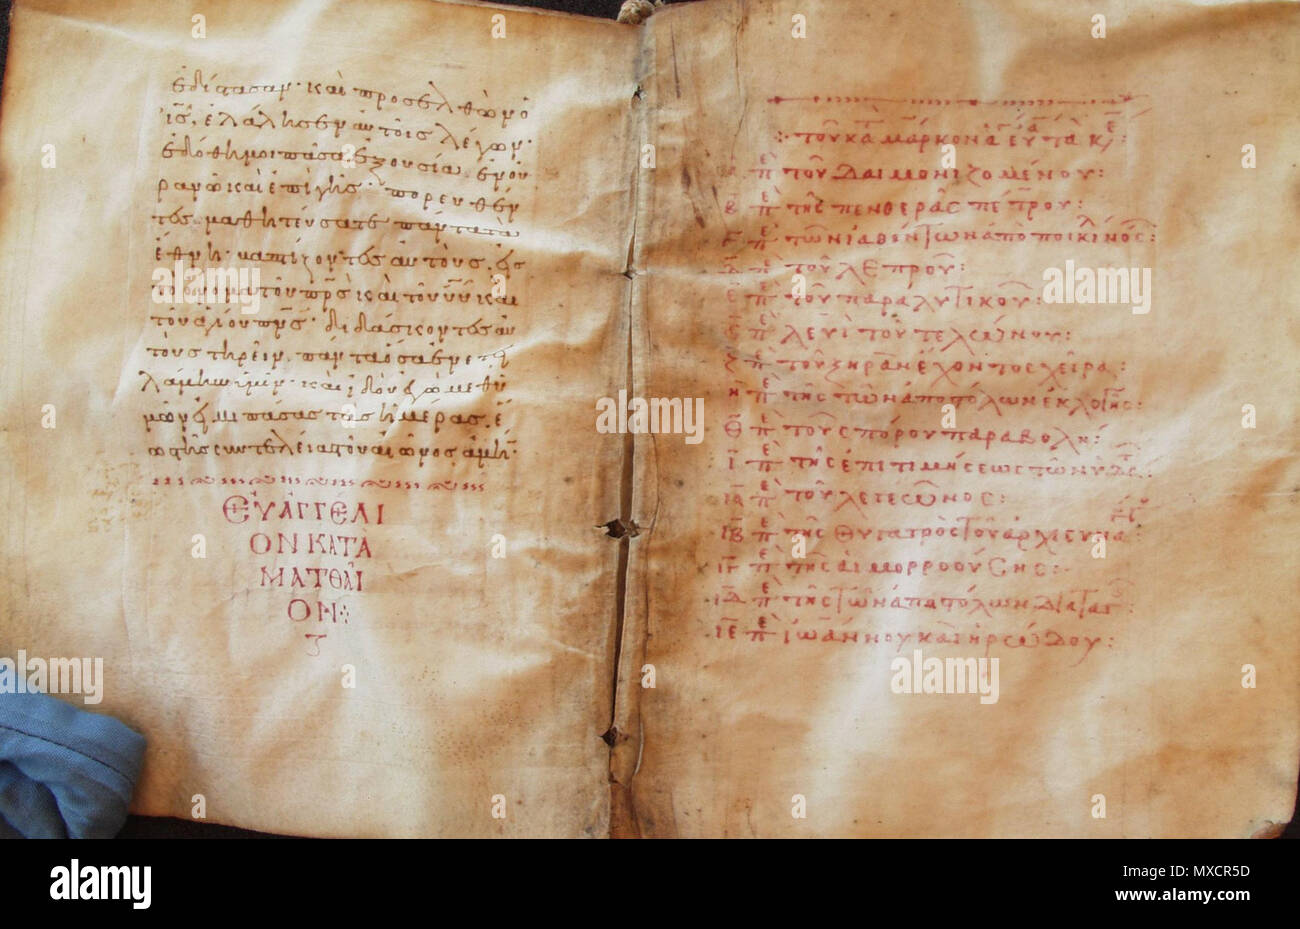 ἐδίστασαν· καὶ προσελθὼν ὁ
ι̅ς̅, ἐλάλησεν αὐτοῖς λέγων·
ἐδόθη μοι πᾶσα ἐξουσία, ἐν οὐ
ρανῶ καὶ ἐπὶ γῆς· πορευθέν
τες, μαθητεύσατε πάντα τὰ
ἔθνη· βαπτίζοντες αὐτοὺς, εἰς
τὸ ὄνομα τοῦ π̅ρ̅ς̅ καὶ τοῦ υ̅υ̅ καὶ
τοῦ ἁγίου π̅ν̅ς̅· διδάσκοντες αὐ
τοὺς τηρεῖν, πάντα ὅσα ἐνετει
λάμην ὑμῖν· καὶ ἰδοὺ ἐγὼ μεθ' ὑ
μῶν εἰμι πάσας τὰς ἡμέρας, ἕ
ως τῆς συντελείας τοῦ αἰῶνος ἀμήν·
ΕΥΑΓΓΕΛΙ
ΟΝ ΚΑΤΑ
ΜΑΤΘΑΙ
ΟΝ
τοῦ κατὰ μάρκον ἁγίου εὐα τὰ κε:
Α πε τοῦ δαιμονιζομένου:
Β πε τῆς πενθερᾶς πέτρου:
Γ πε τῶν ἰαθέντων ἀπὸ ποικίλ νόσ:
Δ πε τοῦ λεπροῦ:
Ε πε τοῦ παραλυτικοῦ:
ϛ πε λευὶ τοῦ τελώνου:
Ζ πε τοῦ ξηρὰν ἔχοντος χεῖρα:
Η πε τῆς τῶν ἀποστόλων ἐκλογῆς:
Θ πε τοῦ σπόρου παραβολὴ:
Ι πε τῆς ἐπιτιμήσεως τῶν ὑδάτ:
ΙΑ πε τοῦ λεγεῶνος:
ΙΒ πε τῆς θυγατρὸς τοῦ ἀρχισυναγώγου:
ΙΓ πε τῆς αἱμορροούσης:
ΙΔ πε τῆς τῶν ἀποστόλων διαταγῆς:
ΙΕ πε ἰωάννου καὶ ἡρώδου:
alamy
Image ID: MXCR5D
www.alamy.com